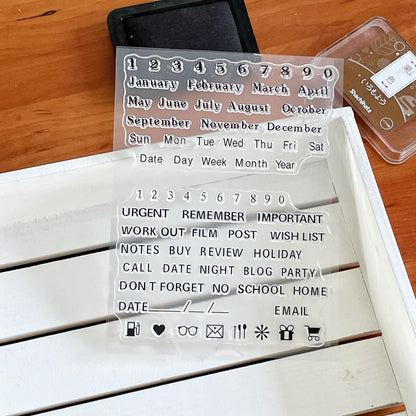 1 2 3 4 5 6 7 8 9 0
January February March April
May June July August October
September November December
Sun Mon Tue Wed Thu Fri Sat
Date Day Week Month Year
1 2 3 4 5 6 7 8 9 0
URGENT REMEMBER IMPORTANT
WORK OUT FILM POST WISH LIST
NOTES BUY REVIEW HOLIDAY
CALL DATE NIGHT BLOG PARTY
DON'T FORGET NO SCHOOL HOME
DATE___/__/__ EMAIL
Shachihata